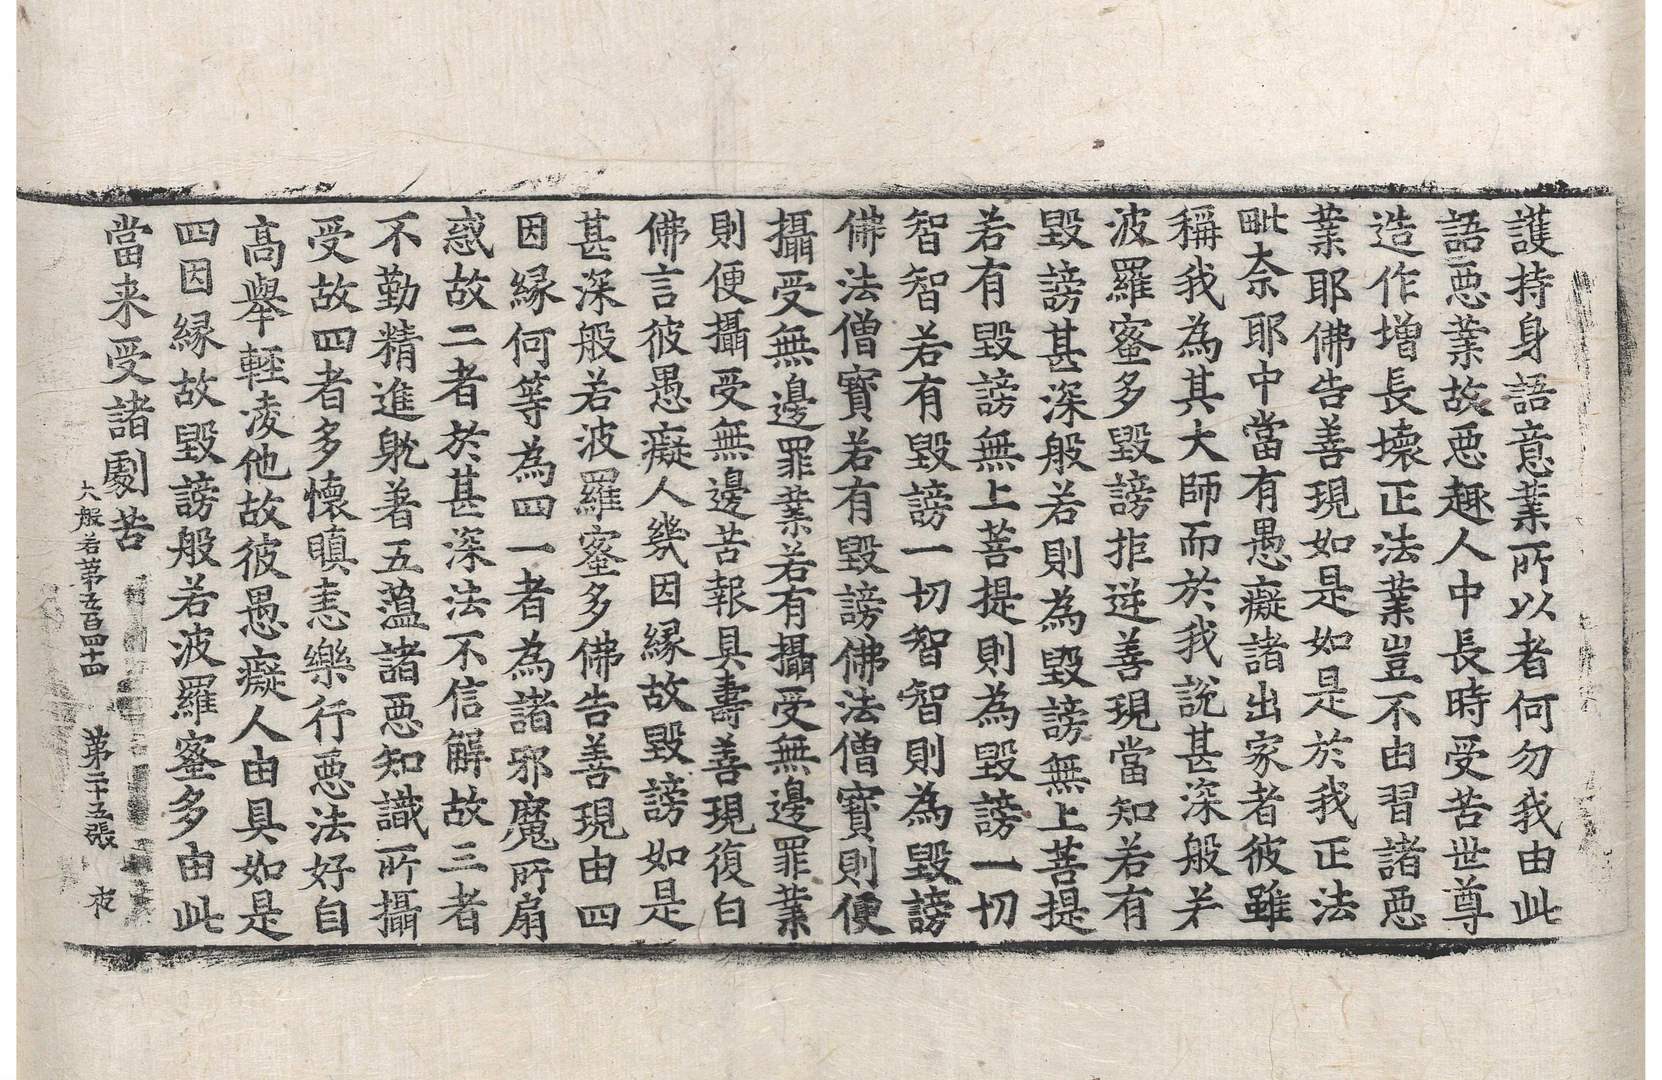 護持身語意業所以者何勿我由此
語惡業故惡趣人中長時受苦世尊
造作增長壞正法業豈不由習諸惡
業耶佛告善現如是如是於我正法
毗奈耶中當有愚癡諸出家者彼雖
稱我為其大師而於我說甚深般若
波羅蜜多毀謗拒逆善現當知若有
毀謗甚深般若則為毀謗無上菩提
若有毀謗無上菩提則為毀謗一切
智智若有毀謗一切智智則為毀謗
佛法僧寶若有毀謗佛法僧寶則便
攝受無邊罪業若有攝受無邊罪業
則便攝受無邊苦報具壽善現復白
佛言彼愚癡人幾因緣故毀謗如是
甚深般若波羅蜜多佛告善現由四
因緣何等為四一者為諸邪魔所扇
惑故二者於甚深法不信解故三者
不勤精進躭著五蘊諸惡知識所攝
受故四者多懷瞋恚樂行惡法好自
高舉輕凌他故彼愚癡人由具如是
四因緣故毀謗般若波羅蜜多由此
當来受諸劇苦
大般若第五百四十四 第二十五張